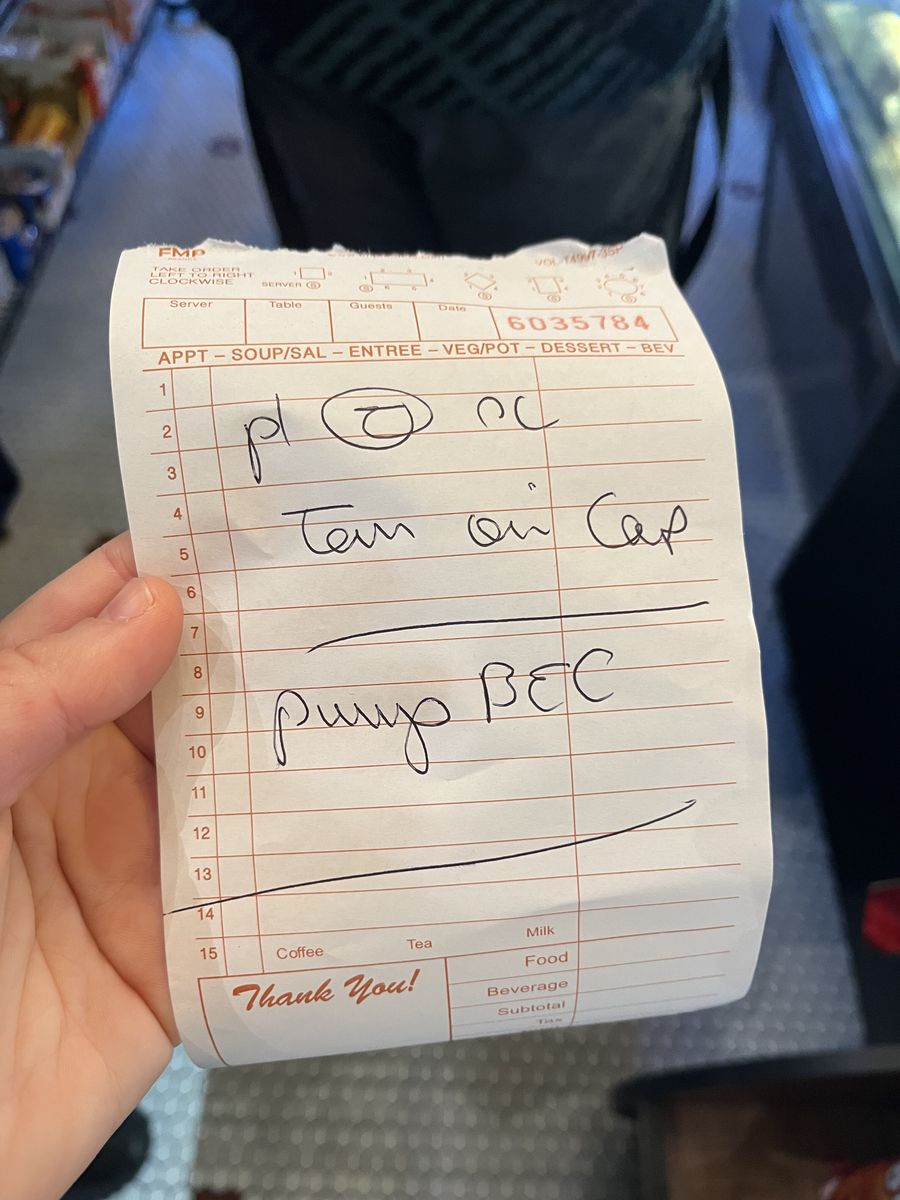 FMP
TAKE ORDER
LEFT TO RIGHT
CLOCKWISE
SERVER
Server Table Guests Date 6035784
APPT – SOUP/SAL – ENTREE – VEG/POT – DESSERT – BEV
1
2
3
4
5
6
7
8
9
10
11
12
13
14
15
pl
Tom on Cap
pump BEC
Coffee Tea Milk
Food
Beverage
Subtotal
Tax
Thank You!